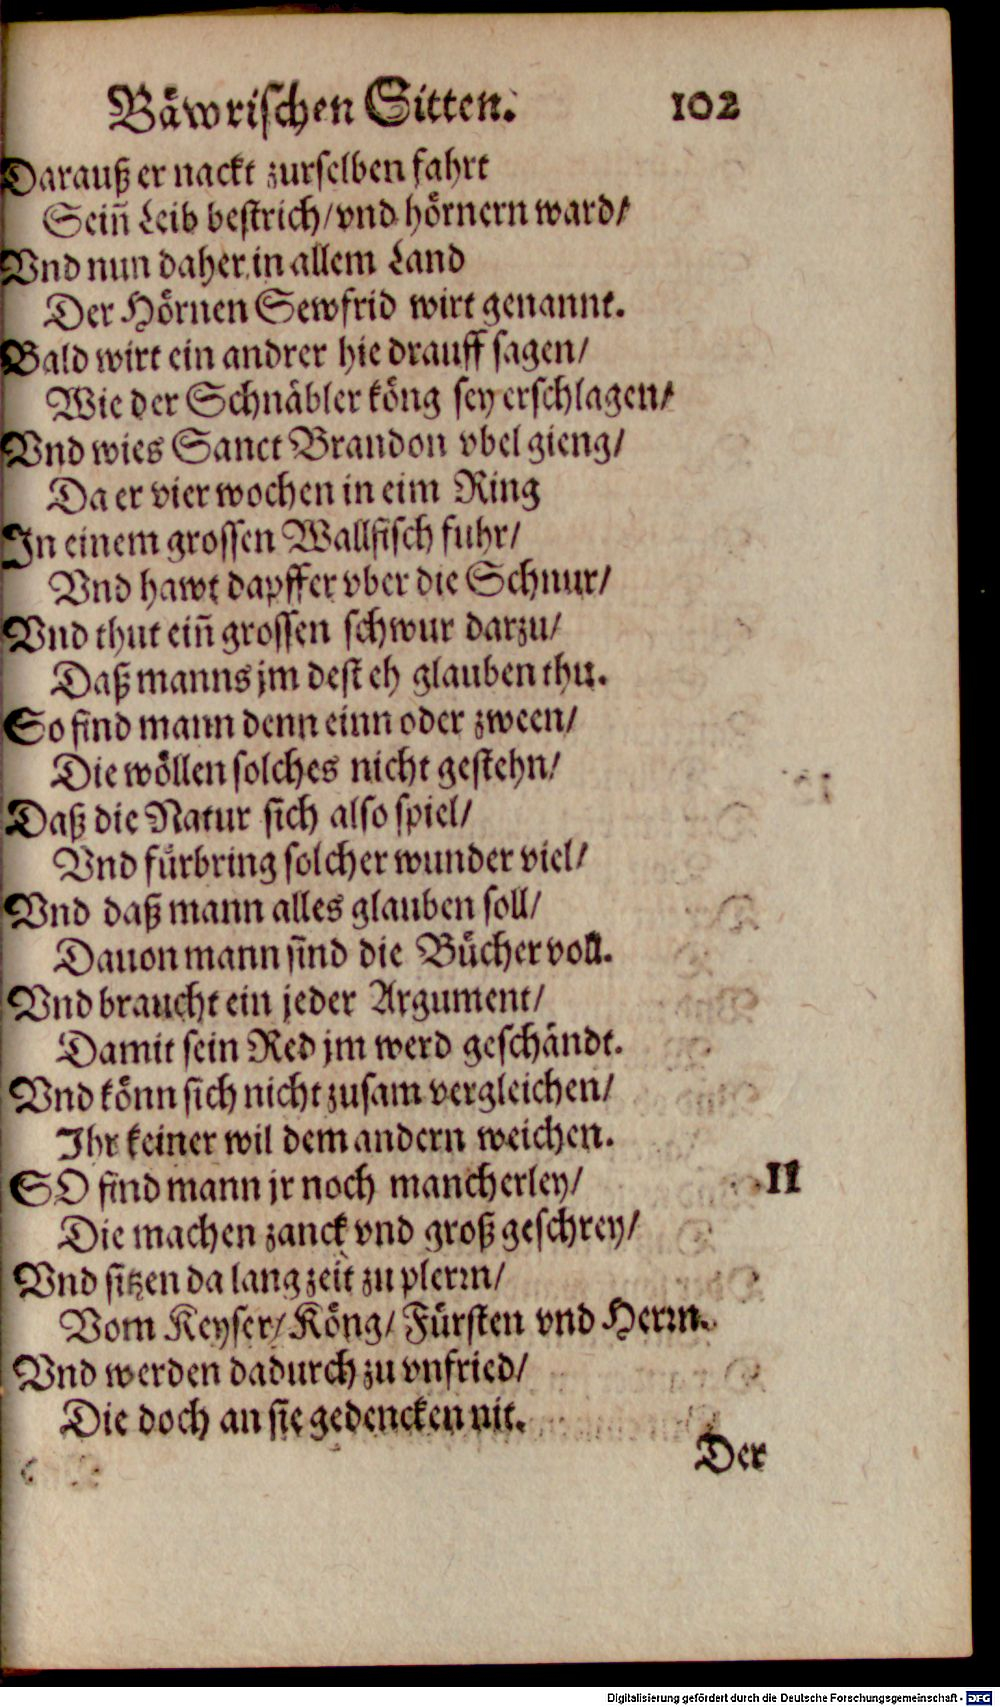 Bäwrischen Sitten. 102
Darauß er nackt zurselben fahrt
Sein̄ Leib bestrich/ vnd hörnern ward/
Vnd nun daher in allem Land
Der Hörnen Sewfrid wirt genannt.
Bald wirt ein andrer hie drauff sagen/
Wie der Schnäbler köng sey erschlagen/
Vnd wies Sanct Brandon vbel gieng/
Da er vier wochen in eim Ring
In einem grossen Wallfisch fuhr/
Vnd hawt dapffer vber die Schnur/
Vnd thut ein̄ grossen schwur darzu/
Daß manns jm dest eh glauben thu.
So find mann denn einn oder zween/
Die wöllen solches nicht gestehn/
Daß die Natur sich also spiel/
Vnd fürbring solcher wunder viel/
Vnd daß mann alles glauben soll/
Dauon mann find die Bücher voll.
Vnd braucht ein jeder Argument/
Damit sein Red jm werd geschändt.
Vnd könn sich nicht zusam vergleichen/
Ihr keiner wil dem andern weichen.
SO find mann jr noch mancherley/ 11
Die machen zanck vnd groß geschrey/
Vnd sitzen da lang zeit zu plerrn/
Vom Keyser/ Köng/ Fürsten vnd Herrn.
Vnd werden dadurch zu vnfried/
Die doch an sie gedencken nit.
Der
Digitalisierung gefördert durch die Deutsche Forschungsgemeinschaft - DFG